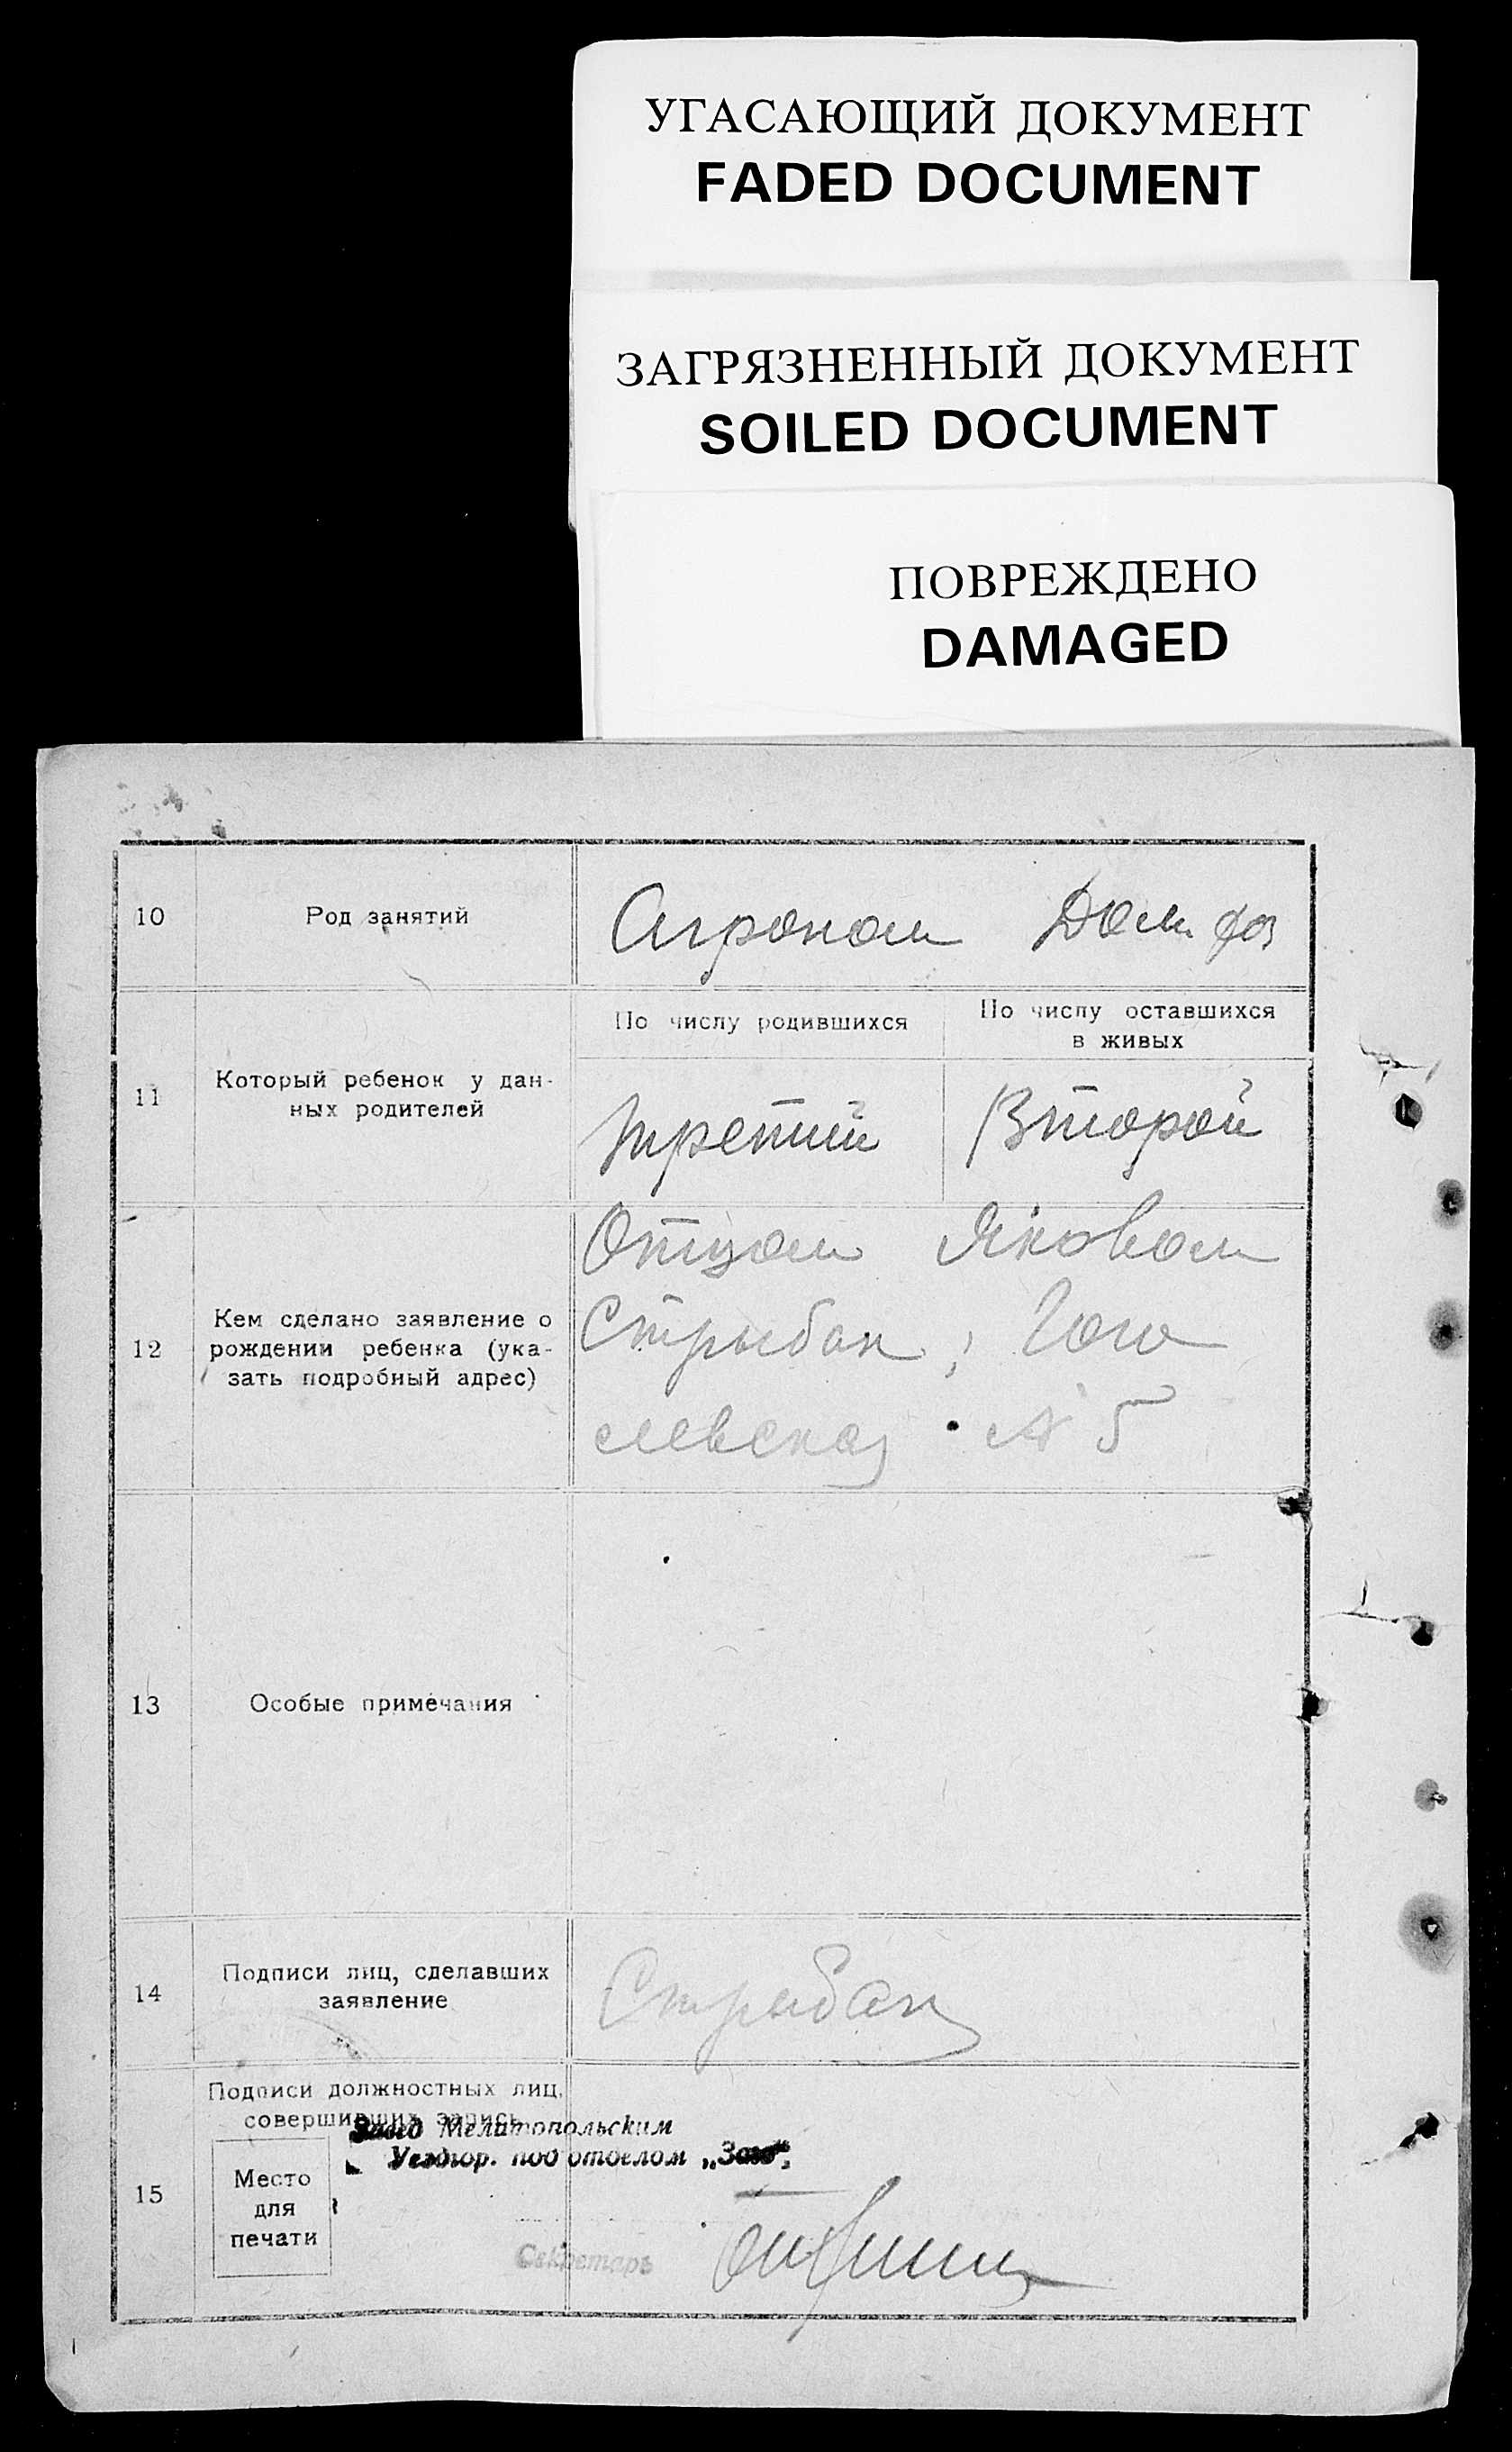 УГАСАЮЩИЙ ДОКУМЕНТ
FADED DOCUMENT
ЗАГРЯЗНЕННЫЙ ДОКУМЕНТ
SOILED DOCUMENT
ПОВРЕЖДЕНО
DAMAGED
10
Род занятий
Агроном
Дом хоз
11
Который ребенок у дан-
ных родителей
По числу родившихся
По числу оставшихся
в живых
третий
Второй
12
Кем сделано заявление о
рождении ребенка (ука-
зать подробный адрес)
Отцом Яковом
Стрыбак, Гого
левская № 5
13
Особые примечания
14
Подписи лиц, сделавших
заявление
Стрыбак
15
Подписи должностных лиц,
совершивших запись
Завед Мелитопольским
Уездгор. подотделом „Загс“,
Место
для
печати
Секретарь